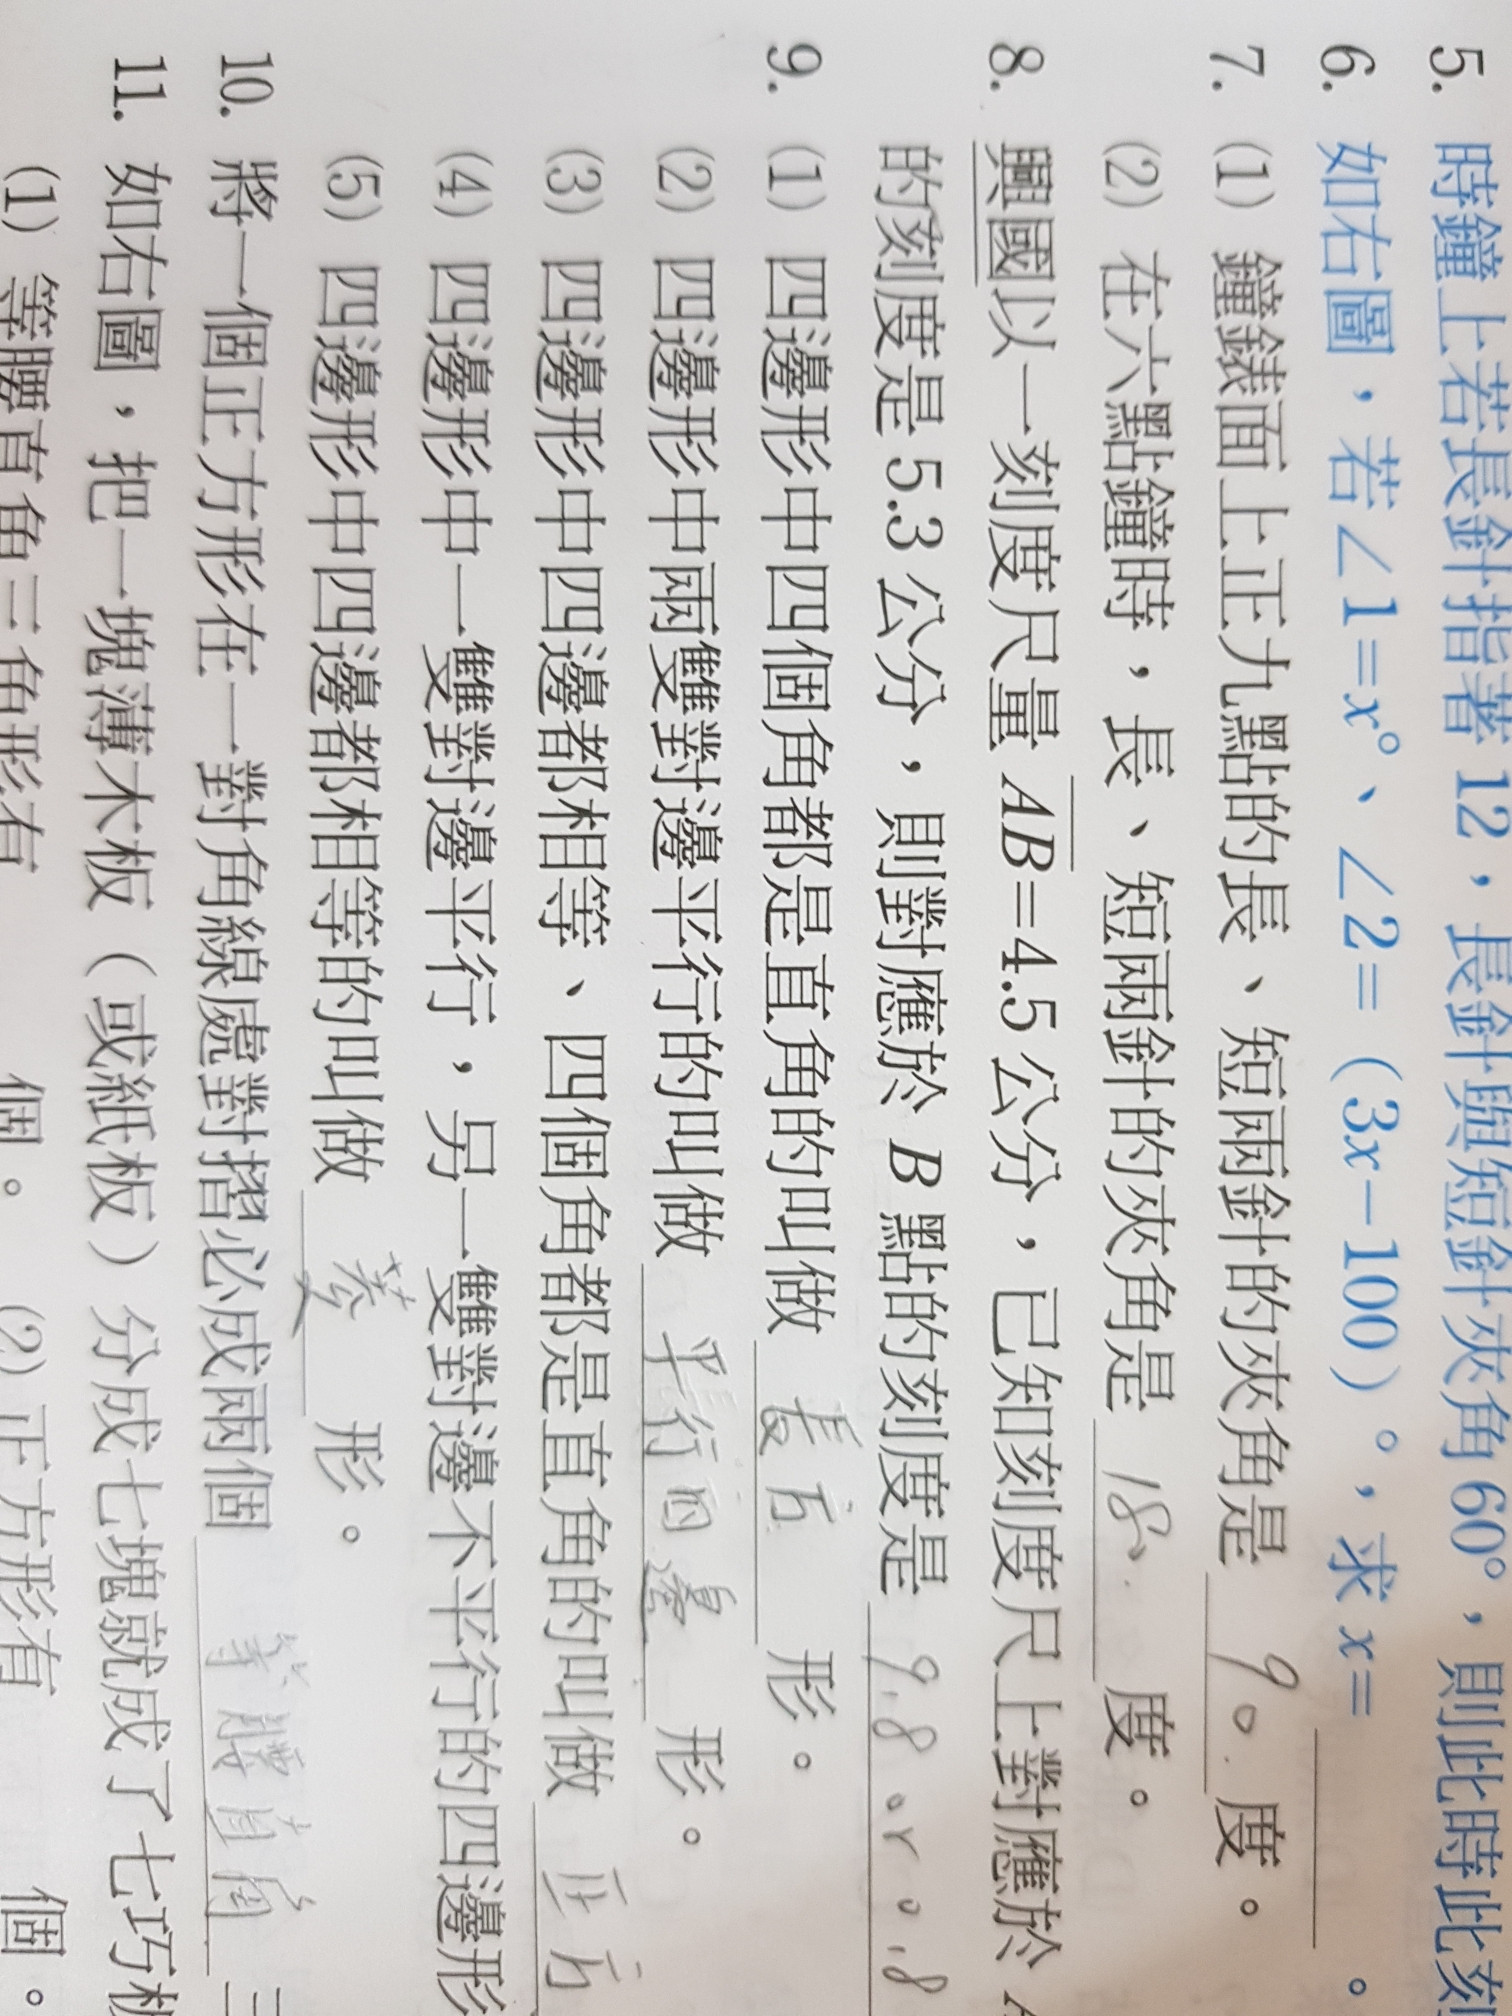 5. 時鐘上若長針指著 12，長針與短針夾角 60°，則此時此刻
6. 如右圖，若∠1=x°、∠2=（3x－100）°，求 x=＿＿＿。
7. (1) 鐘錶面上正九點的長、短兩針的夾角是 90. 度。
(2) 在六點鐘時，長、短兩針的夾角是 18 度。
8. 興國以一刻度尺量 AB=4.5 公分，已知刻度尺上對應於
的刻度是 5.3 公分，則對應於 B 點的刻度是 9.8 or 0.8
9. (1) 四邊形中四個角都是直角的叫做 長方 形。
(2) 四邊形中兩雙對邊平行的叫做 平行四邊 形。
(3) 四邊形中四邊都相等、四個角都是直角的叫做 正方
(4) 四邊形中一雙對邊平行，另一雙對邊不平行的四邊形
(5) 四邊形中四邊都相等的叫做 菱 形。
10. 將一個正方形在一對角線處對摺必成兩個 等腰直角 三
11. 如右圖，把一塊薄木板（或紙板）分成七塊就成了七巧板
(1) 等腰直角三角形有 個。 (2) 正方形有 個。